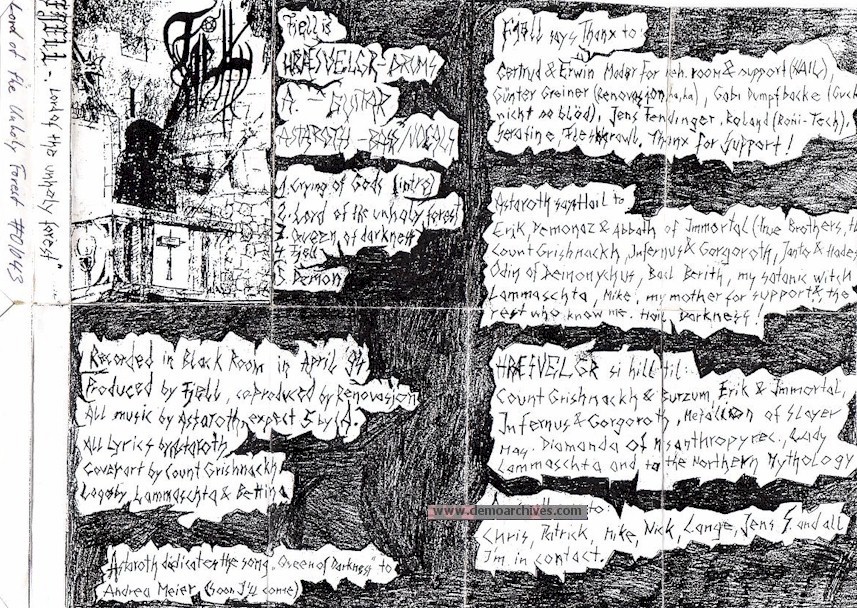 Lord of the Unholy Forest #01043
FJELL - "Lord of the unholy forest"
Fjell
Fjell is
HRÆSVELGR - DRUMS
A. - GUITAR
ASTAROTH - BASS/VOCALS
1. Crying of Gods (intro)
2. Lord of the unholy forest
3. Queen of darkness
4. Fjell
5. Demon
Fjell says Thanx to:
Gertrud & Erwin Modar for reh. room & support (HAIL),
Günter Greiner (Renovasion, ha, ha), Gabi Dumpfbacke (Guck
nicht so blöd), Jens Fendinger, Roland (Roni-Tech),
Serafine, Fleshcrawl. Thanx for support!
Astaroth says Hail to
Erik, Demonaz & Abbath of Immortal (true Brothers,
Count Grishnackh, Infernus & Gorgoroth, Janto & Hades
Odin of Demonychus, Baal Berith, my satanic witch
Lammaschta, Mike, my mother for support & the
rest who know me. Hail Darkness!
Recorded in Black Room in April 94
Produced by Fjell, coproduced by Renovasion
All music by Astaroth, expect 5 by A.
All Lyrics by Astaroth
Coverart by Count Grishnackh
Logo by Lammaschta & Bettina
HRÆSVELGR si hill til:
Count Grishnackh & Burzum, Erik & Immortal,
Infernus & Gorgoroth, Metallion of Slayer
Mag. Diamanda of Misanthropy rec., Lady
Lammaschta and to the Northern Mythology
to:
Chris, Patrick, Mike, Nick, Lange, Jens S and all
I'm in contact.
www.demoarchives.com
Astaroth dedicates the song "Queen of Darkness" to
Andrea Meier (Soon I'll come)